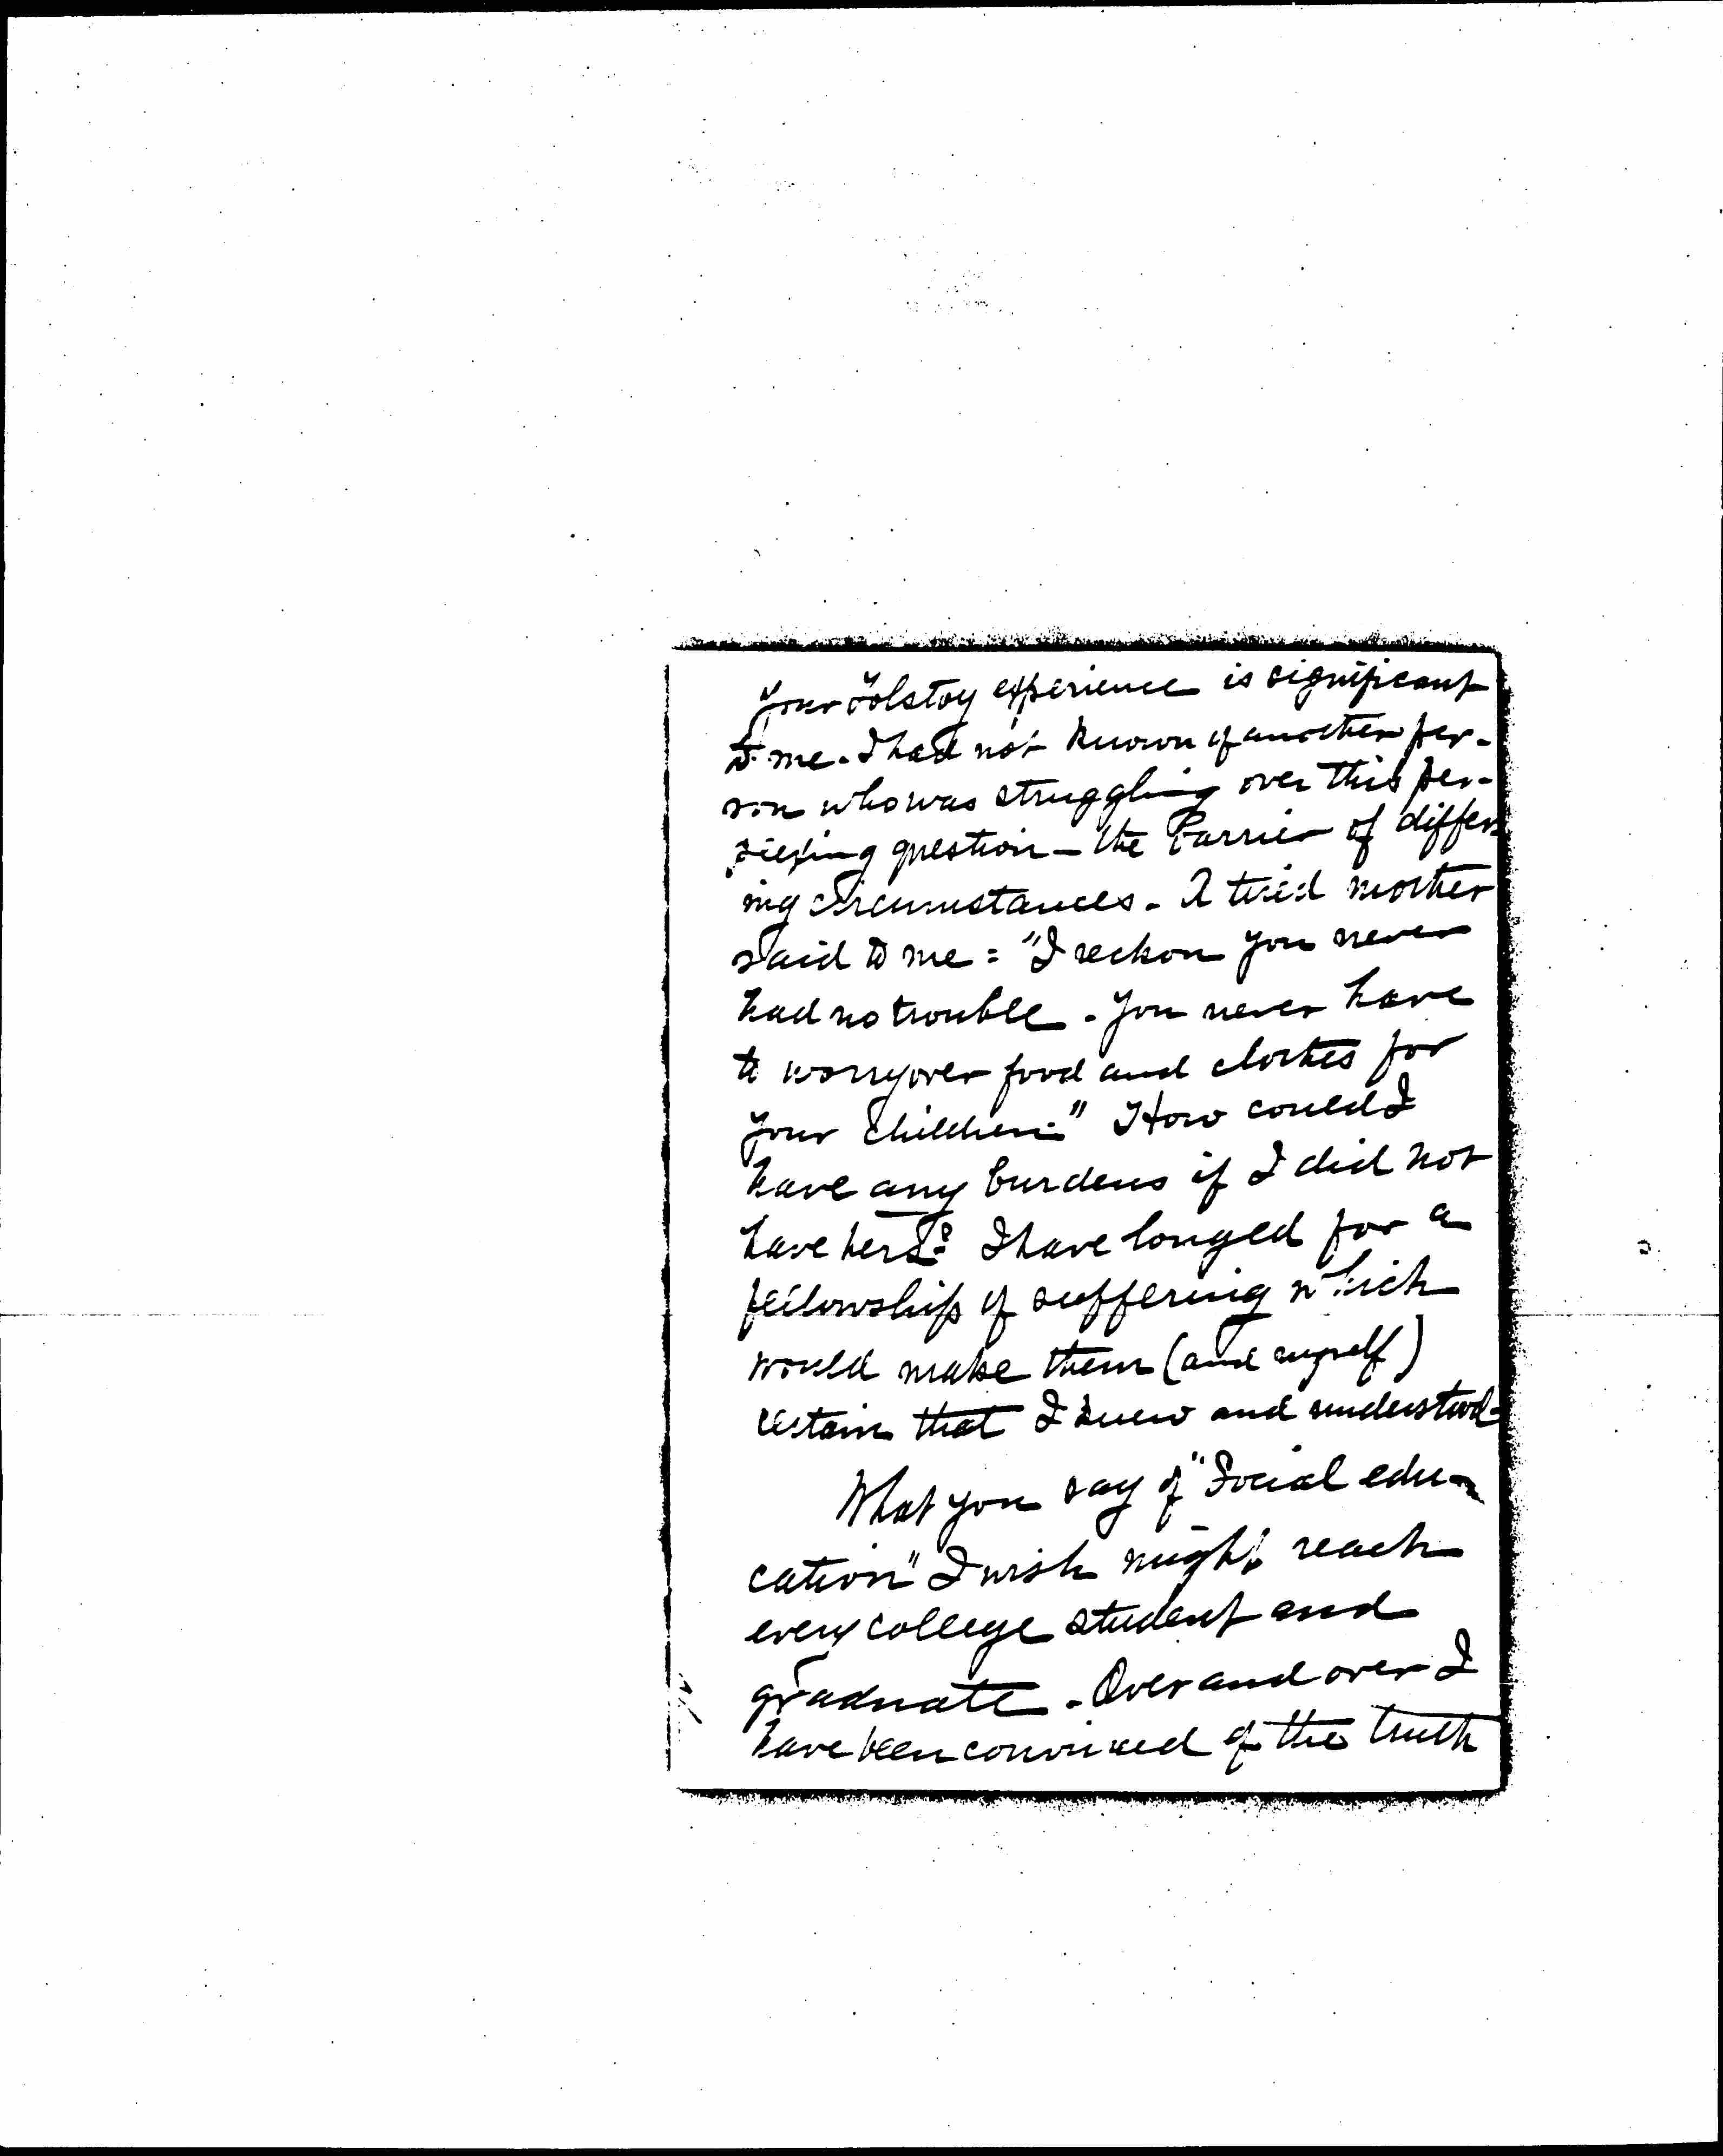 Your Tolstoy experience is significant
to me. I had not known of another per-
son who was struggling over this per-
plexing question - the barrier of differ-
ing circumstances. A tired mother
said to me: "I reckon you never
had no trouble. You never have
to worry over food and clothes for
your children." How could I
have any burdens if I did not
have hers? I have longed for a
fellowship of suffering which
would make them (and myself)
certain that I knew and understood.
What you say of "Social edu-
cation" I wish might reach
every college student and
graduate. Over and over I
have been convinced of the truth